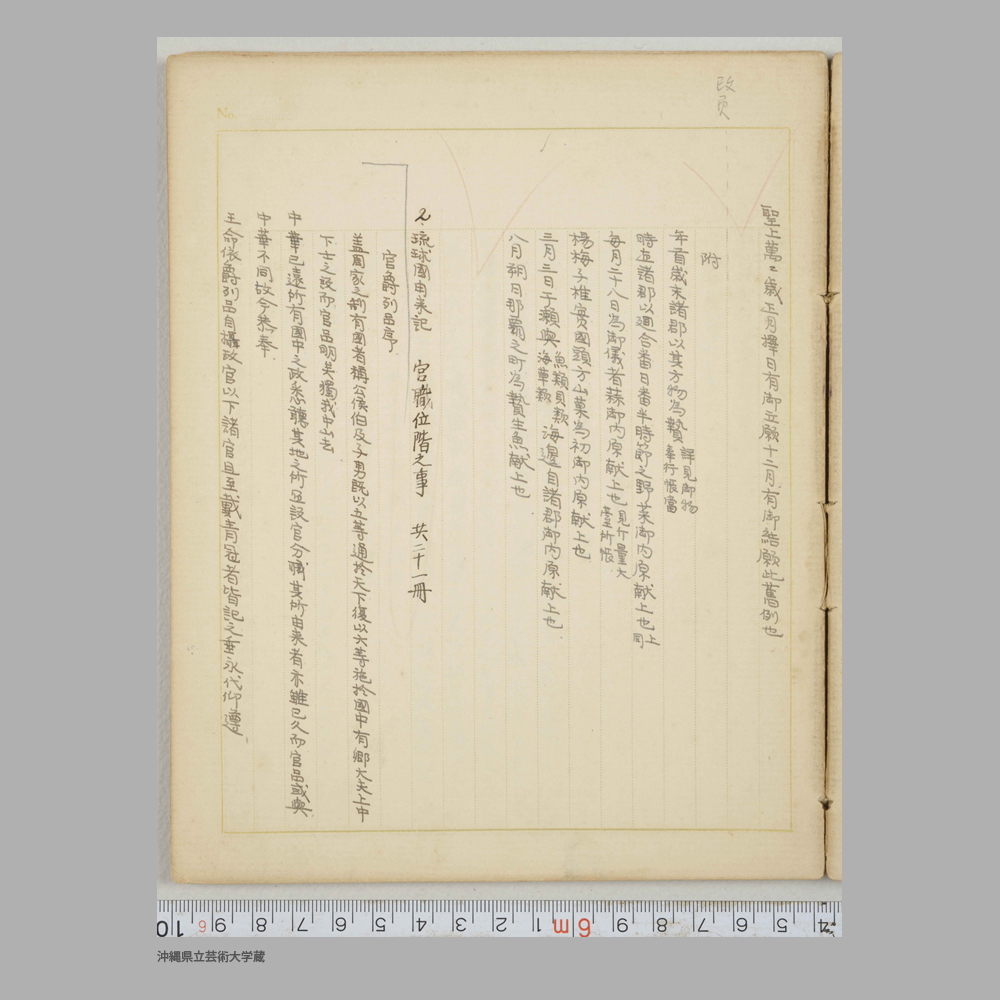 改頁
No.
聖上萬々歳正月擇日有御立願十二月有御結願此舊例也
附
年首歳末諸郡以其方物為贄 詳見御物奉行帳當
時巡諸郡以適合番日番半時節之野菜御内原献上也 上同
毎月二十八日為御儀者蒜御内原献上也 見斤量大臺所帳
楊梅子椎実國頭方山菓為初御内原献上也
三月三日于瀬與 魚類貝類海草類 海邊自諸郡御内原献上也
八月朔日那覇之町為贄生魚献上也
2. 琉球國由来記 官職位階之事 共二十一冊
官爵列品序
盖周家之制有國者稱公侯伯及子男既以五等通於天下復以六等施於國中有卿大夫上中
下士之設而官品明矣獨我中山去
中華已遠所有國中之政悉聽其地之所宜設官分職其所由来者亦雖已久而官品或與
中華不同故今恭奉
王命依爵列品自攝政官以下諸官且至戴青冠者皆記之垂永代仰遵
10 9 8 7 6 5 4 3 2 1 6m 9 8 7 6 5 4
沖縄県立芸術大学蔵